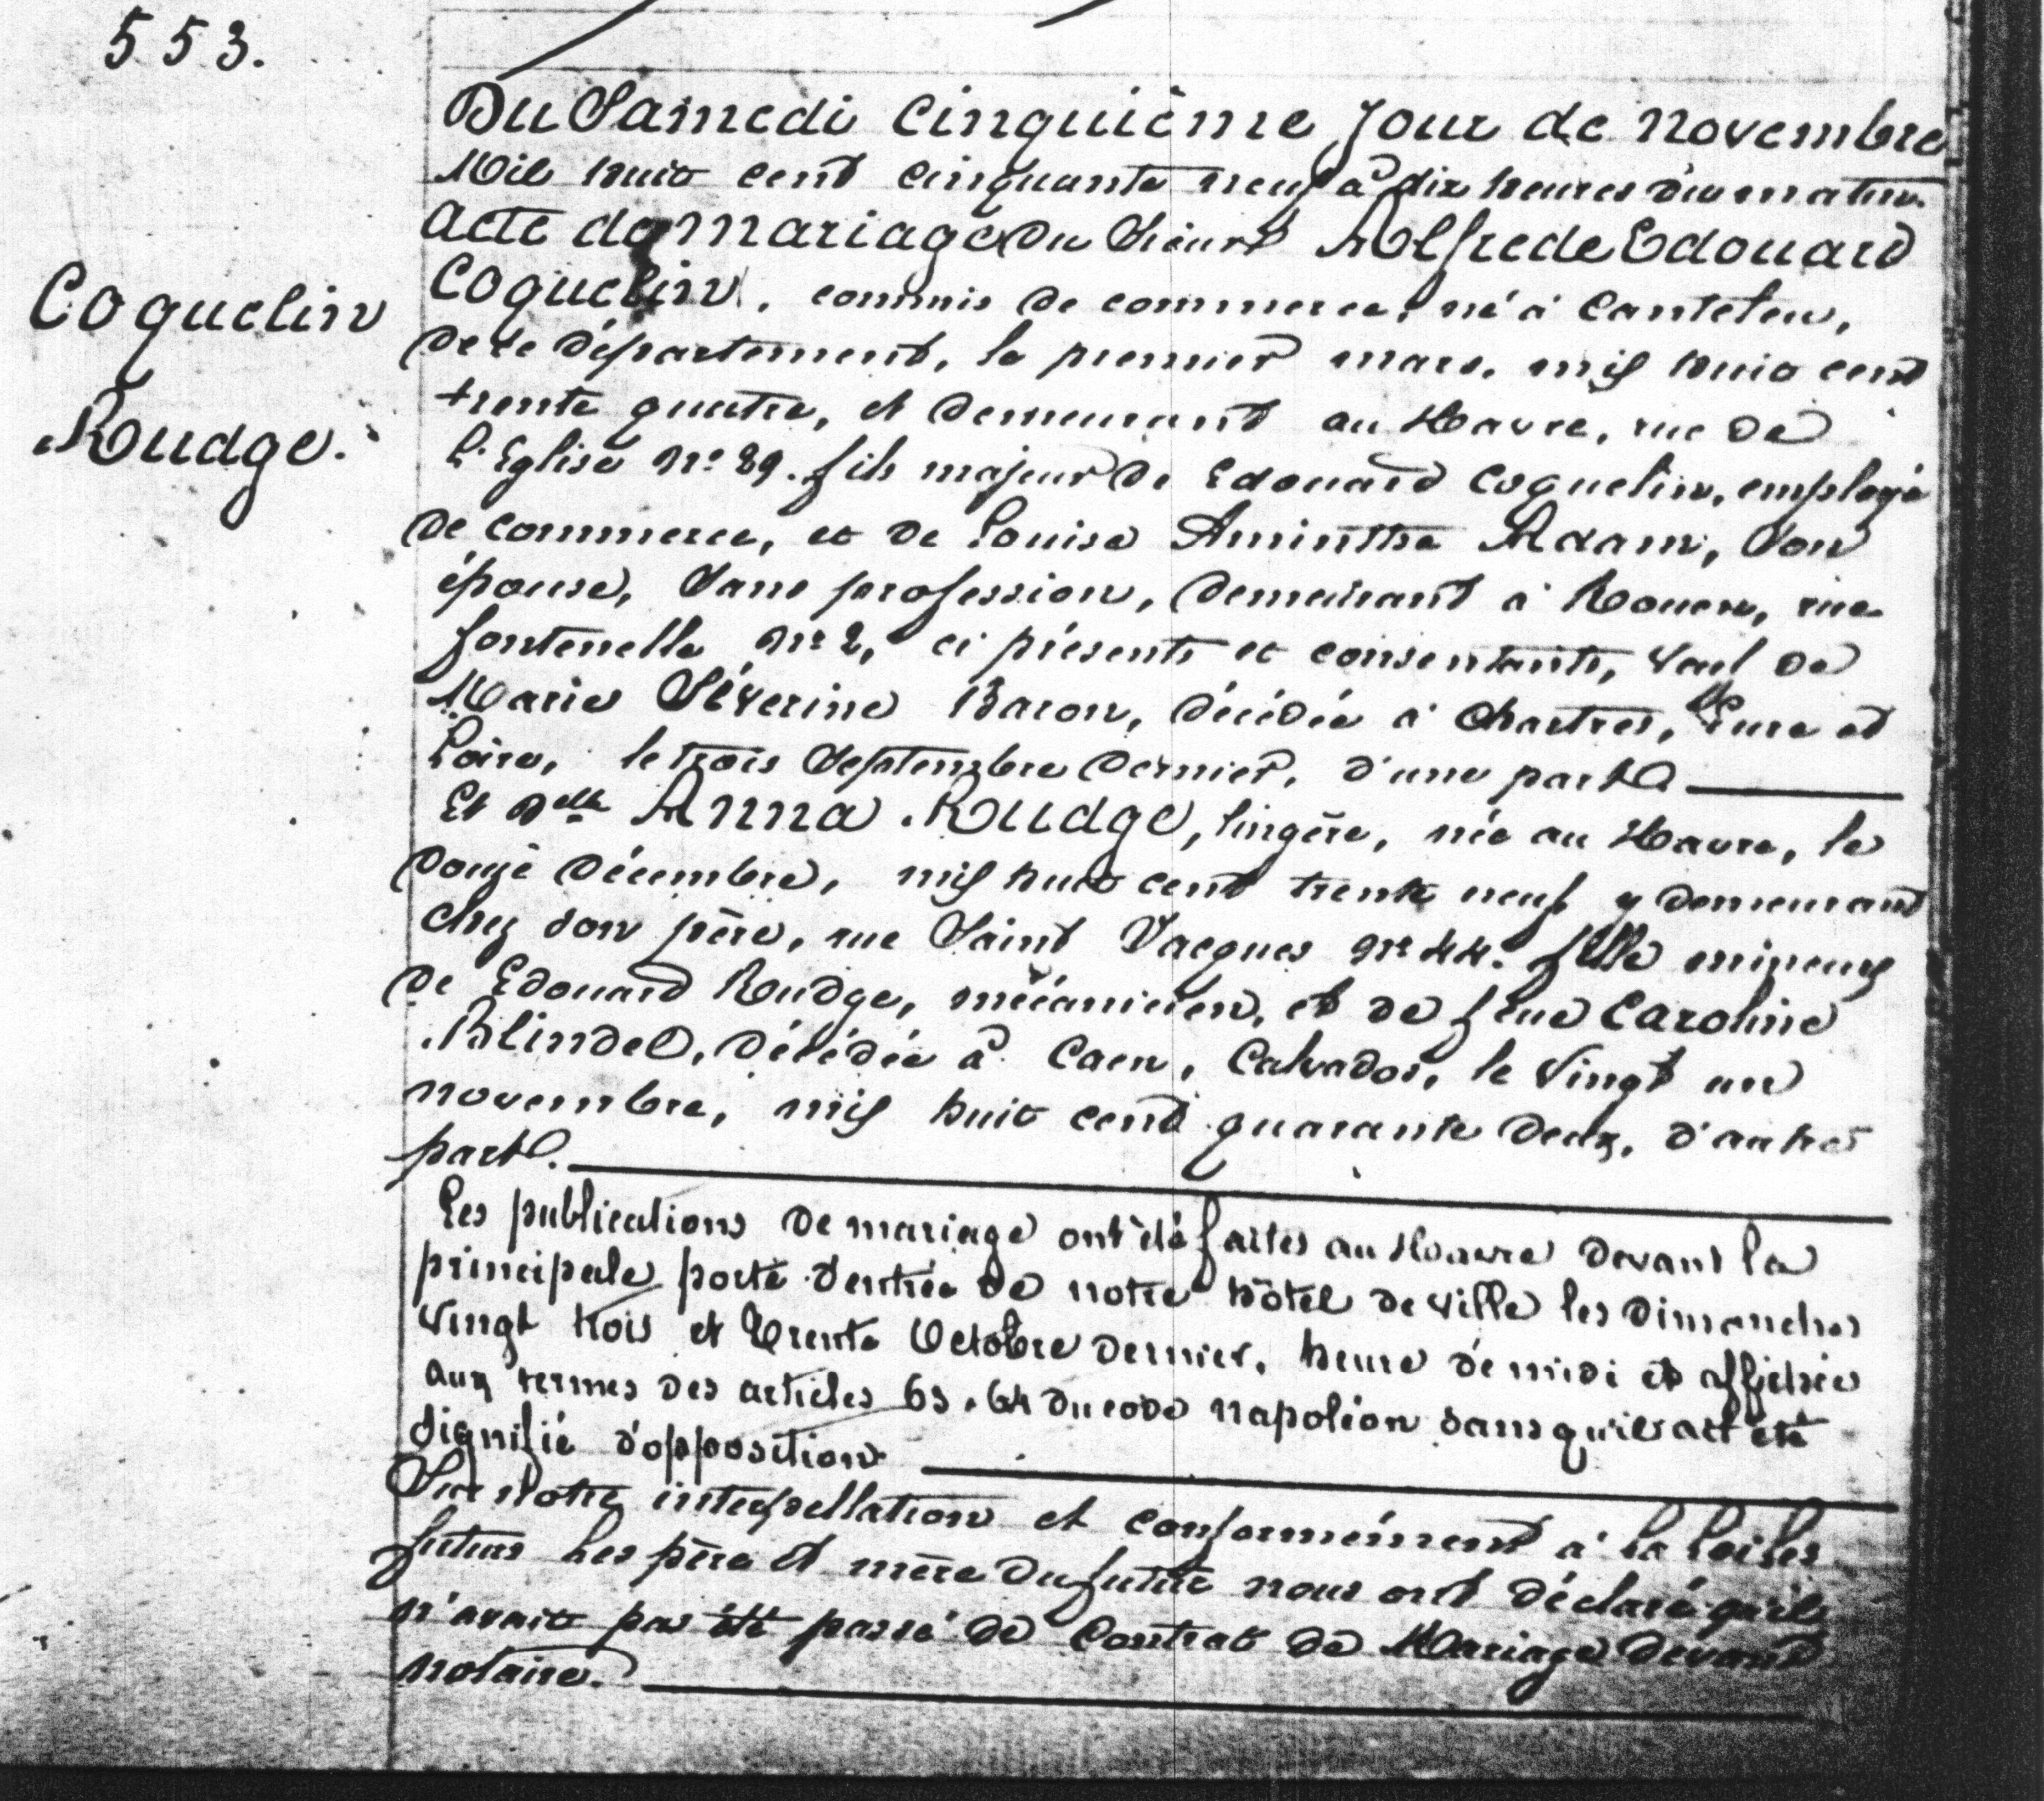 553.
Du Samedi cinquième jour de novembre
Mil huit cent cinquante neuf à dix heures du matin.
Acte de mariage du Sieur Alfrede Edouard
Coquelin
Coquelin, commis de commerce, né à Canteleu,
de ce département, le premier mars, mil huit cent
trente quatre, et demeurant au Havre, rue de
Rudge.
l'Eglise N° 29. fils majeur de Edouard Coquelin, employé
de commerce, et de Louise Aminthe Adam, son
épouse, sans profession, demeurant à Rouen, rue
fontenelle N° 2, ci présents et consentants, veuf de
Marie Séverine Baron, décédée à Chartres, Eure et
Loire, le trois Septembre dernier, d'une part
Et Delle Anna Rudge, lingère, née au Havre, le
douze décembre, mil huit cent trente neuf y demeurant
chez son père, rue Saint Jacques N° 44. fille mineure
de Edouard Rudge, mécanicien, et de feue Caroline
Blindel, décédée à Caen, Calvados, le vingt un
novembre, mil huit cent quarante deux, d'autre
part.
Les publications de mariage ont été faites au Havre devant la
principale porte d'entrée de notre hôtel de ville les dimanches
vingt trois et trente Octobre dernier, heure de midi et affichée
aux termes des articles 63. 64 du code napoléon sans qu'il ait été
signifié d'opposition
Sur notre interpellation et conformément à la loi les
futurs les père et mère du futur nous ont déclaré qu'il
n'avait pas été passé de Contrat de Mariage devant
notaire.